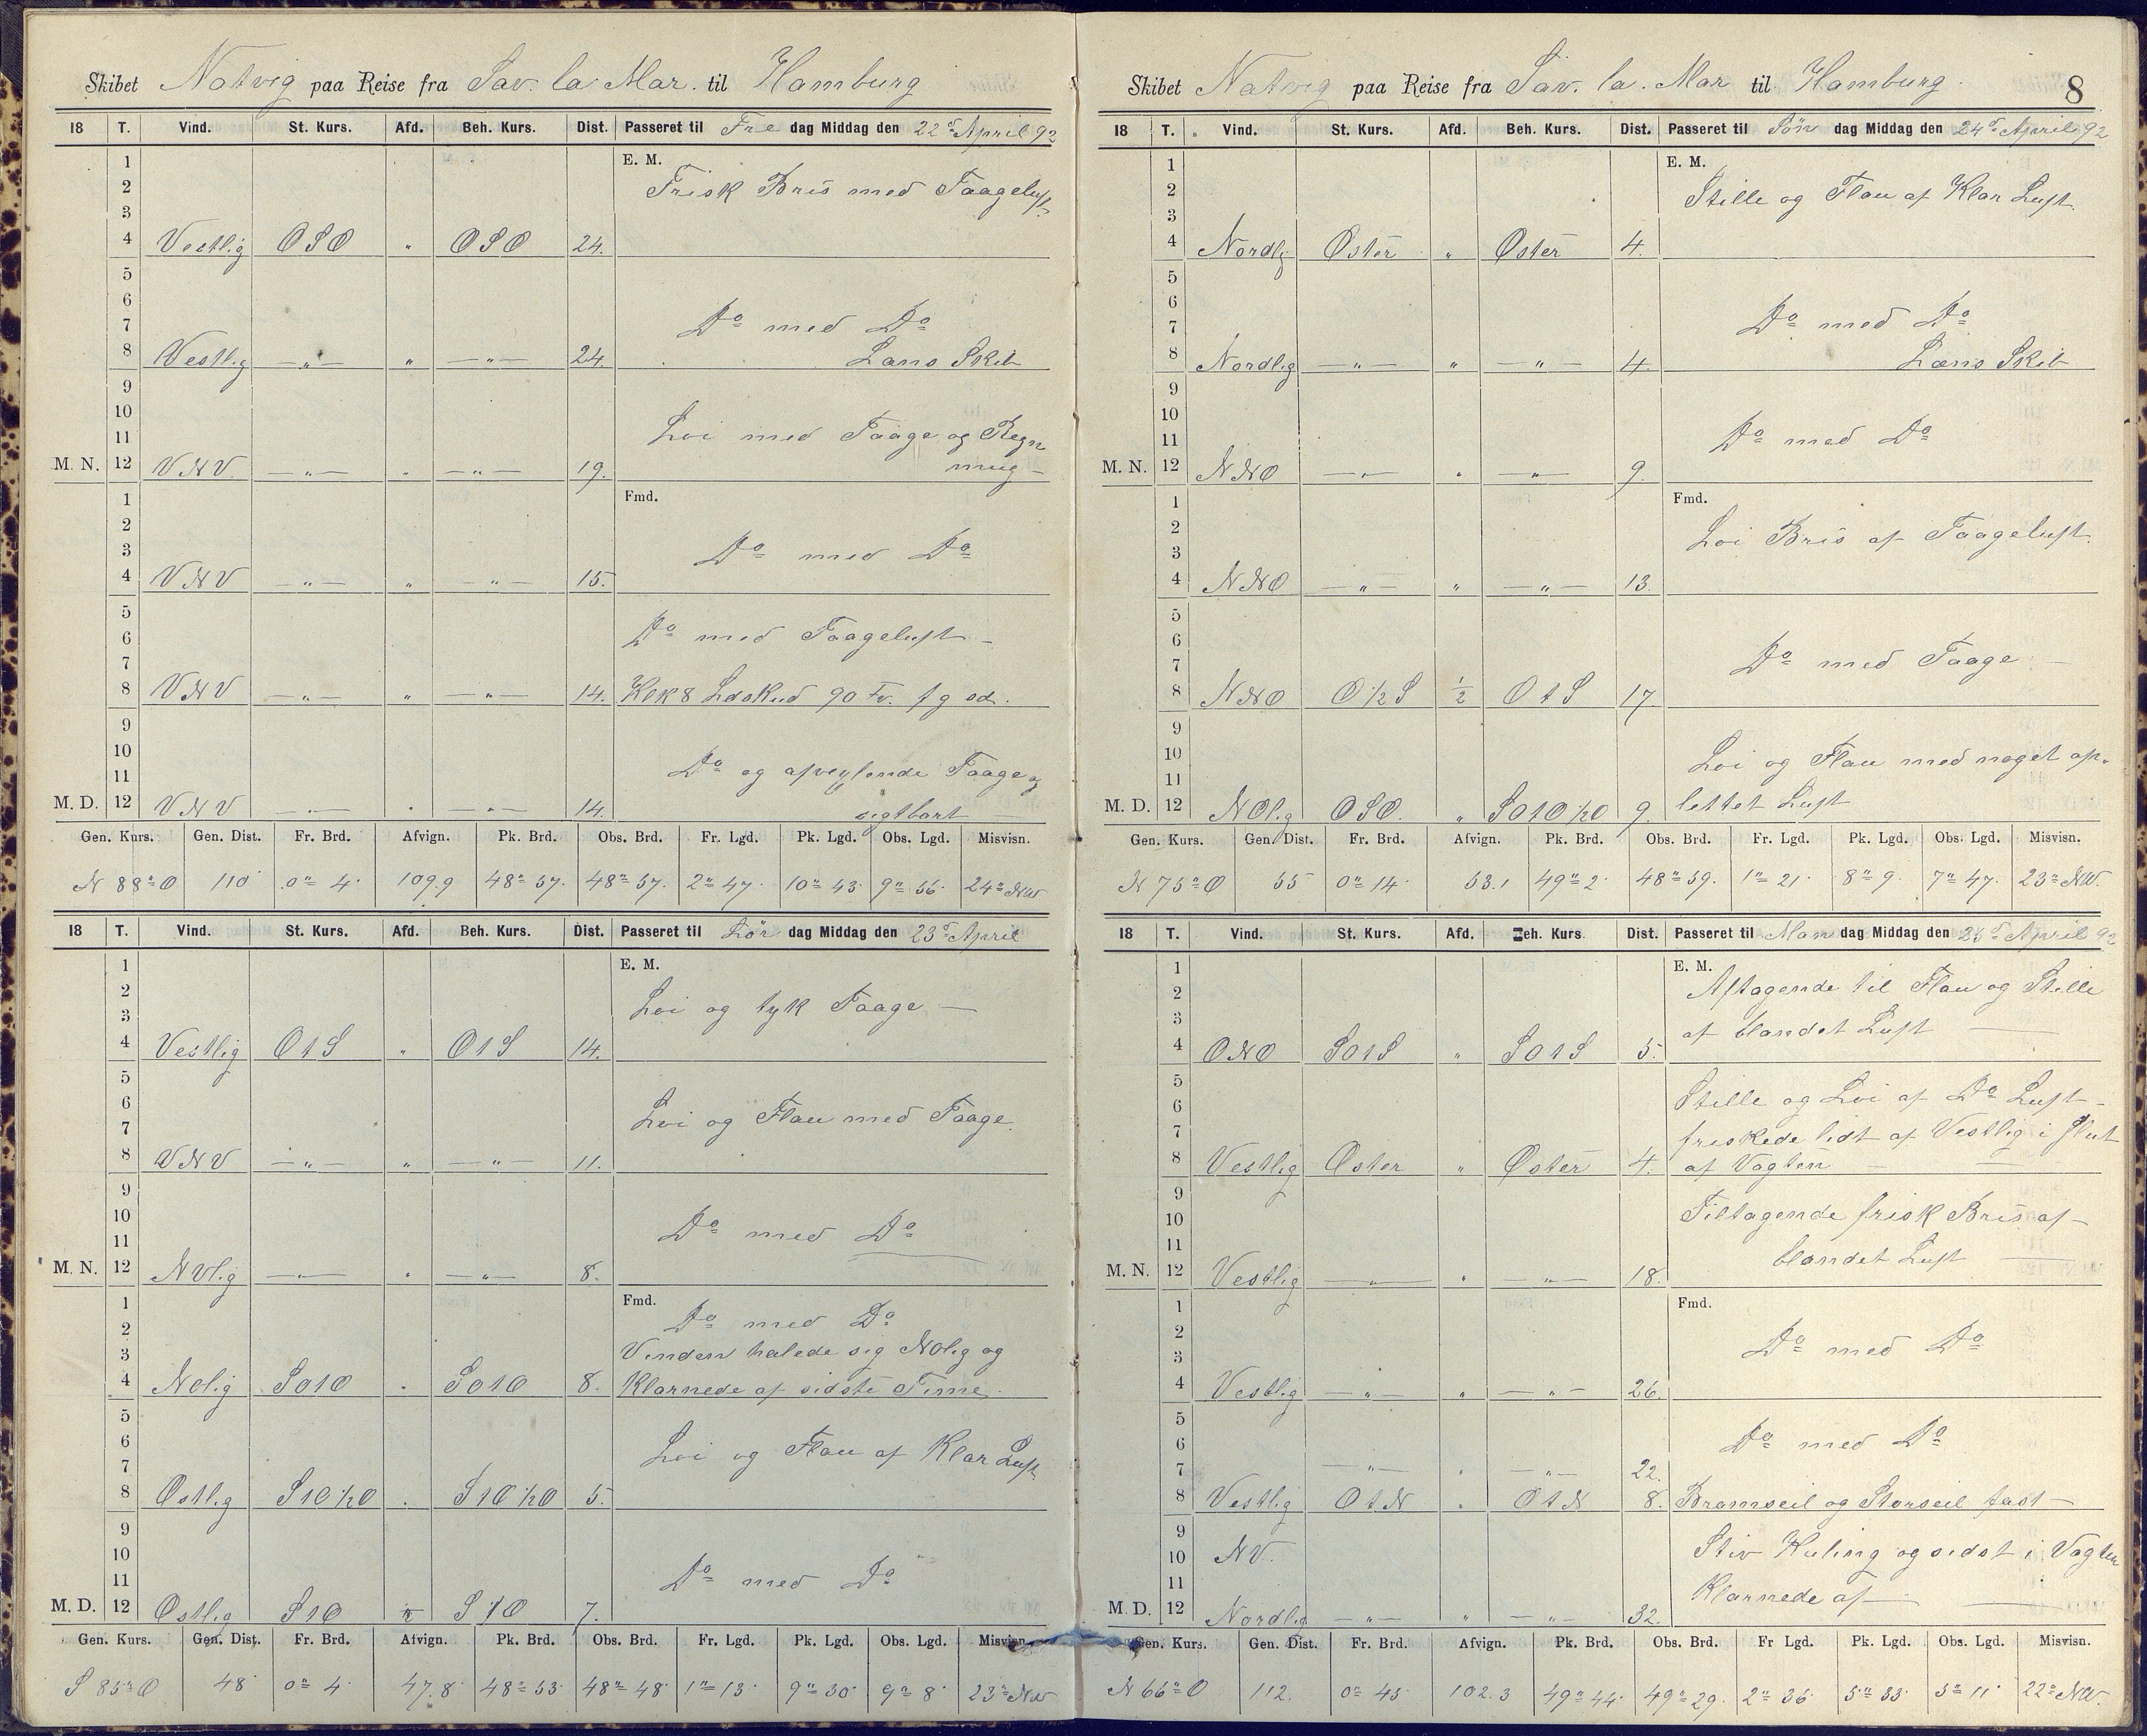 Skibet Natvig paa Reise fra Sav. la Mar. til Hamburg
18 T. Vind. St. Kurs. Afd. Beh. Kurs. Dist. Passeret til Fre dag Middag den 22d April 92
1 E. M.
2 Frisk Bris med Taageluft
3
4 Vestlig OSO „ OSO 24.
5
6
7 Do med Do
8 Vestlig —„— „ —„— 24. Læns Skib
9
10
11 Loi med Taage og Regn
M. N. 12 VNV —„— „ —„— 19.
1 Fmd.
2
3 Do med Do
4 VNV —„— „ —„— 15.
5
6 Do med Taageluft —
7
8 VNV —„— „ —„— 14. Klk 8 Lodskud 90 Fv.
9
10
11 Do og afvexlende Taage og
M. D. 12 VNV —„— „ —„— 14. sigtbart
Gen. Kurs. Gen. Dist. Fr. Brd. Afvign. Pk. Brd. Obs. Brd. Fr. Lgd. Pk. Lgd. Obs. Lgd. Misvisn.
N 88° O 110 0° 4' 109.9 48° 57' 48° 57' 2° 47' 10° 43' 9° 56' 24° NW
18 T. Vind. St. Kurs. Afd. Beh. Kurs. Dist. Passeret til Lör dag Middag den 23d April
1 E. M.
2 Loi og tyk Taage —
3
4 Vestlig O t S „ O t S 14.
5
6
7 Loi og Flau med Taage.
8 VNV —„— „ —„— 11.
9
10
11 Do med Do
M. N. 12 NVlig —„— „ —„— 8.
1 Fmd.
2 Do med Do
3 Vinden halede sig NOlig og
4 NOlig SO t O „ SO t O 8. Klarnede af sidste Time.
5
6
7 Loi og Flau af Klar Luft
8 Ostlig S t O ½ O „ S t O ½ O 5.
9
10
11 Do med Do
M. D. 12 Ostlig S t O S t O 7.
Gen. Kurs. Gen. Dist. Fr. Brd. Afvign. Pk. Brd. Obs. Brd. Fr. Lgd. Pk. Lgd. Obs. Lgd. Misvisn.
S 85° O 48' 0° 4' 47.8 48° 53' 48° 48' 1° 13' 9° 30' 9° 8' 23° NW
8
Skibet Natvig paa Reise fra Sav. la. Mar til Hamburg.
18 T. Vind. St. Kurs. Afd. Beh. Kurs. Dist. Passeret til Sön dag Middag den 24d April 92
1 E. M.
2 Stille og Flau af Klar Luft.
3
4 Nordlig Öster „ Öster 4.
5
6
7 Do med Do
8 Nordlig —„— „ —„— 4. Læns Skib
9
10
11 Do med Do
M. N. 12 NNO —„— „ —„— 9.
1 Fmd.
2 Loi Bris af Taageluft.
3
4 NNO —„— „ —„— 13.
5
6
7 Do med Taage —
8 NNO O ½ S ½ O t S 17.
9
10 Loi og Flau med noget op-
11
M. D. 12 NOlig OSO. „ SO t O ½ O 9. lettet Luft
Gen. Kurs. Gen. Dist. Fr. Brd. Afvign. Pk. Brd. Obs. Brd. Fr. Lgd. Pk. Lgd. Obs. Lgd. Misvisn.
N 75° O 55 0° 14' 53.1 49° 2' 48° 59' 1° 21' 8° 9' 7° 47' 23° NW.
18 T. Vind. St. Kurs. Afd. Beh. Kurs. Dist. Passeret til Man dag Middag den 25d April 92
1 E. M.
2 Aftagende til Flau og Stille
3
4 ONO SO t S „ SO t S 5. af blandet Luft —
5
6 Stille og Loi af Do Luft —
7 friskede lidt af Vestlig i Slut
8 Vestlig Oster „ Öster 4. af Vagten —
9
10 Tiltagende frisk Bris af —
11
M. N. 12 Vestlig —„— „ —„— 18. blandet Luft —
1 Fmd.
2
3 Do med Do
4 Vestlig —„— „ —„— 26.
5
6 Do med Do
7 —„— „ —„— 22.
8 Vestlig O t N „ O t N 8. Bramseil og Storseil fast —
9
10 NV. Stiv Kuling og sidst i Vagten
11 Klarnede af —
M. D. 12 Nordlig —„— „ —„— 32.
Gen. Kurs. Gen. Dist. Fr. Brd. Afvign. Pk. Brd. Obs. Brd. Fr Lgd. Pk. Lgd. Obs. Lgd. Misvisn.
N 66° O 112. 0° 45' 102.3 49° 44' 49° 29' 2° 36' 5° 33' 5° 11' 22° NW.